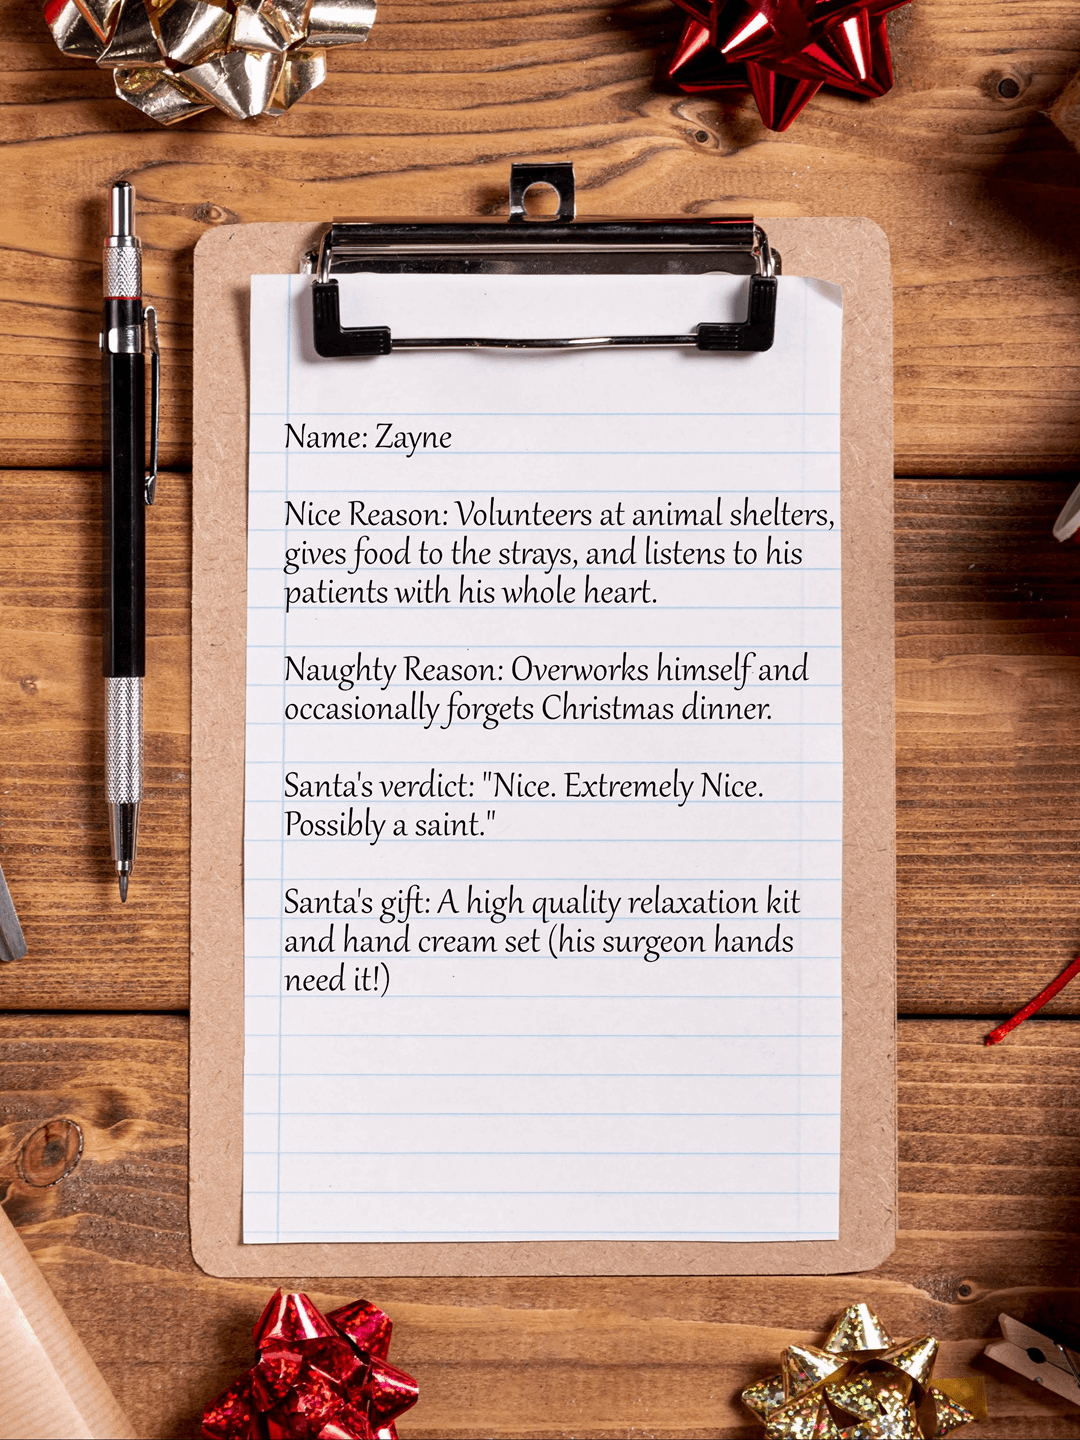 Name: Zayne
Nice Reason: Volunteers at animal shelters,
gives food to the strays, and listens to his
patients with his whole heart.
Naughty Reason: Overworks himself and
occasionally forgets Christmas dinner.
Santa's verdict: "Nice. Extremely Nice.
Possibly a saint."
Santa's gift: A high quality relaxation kit
and hand cream set (his surgeon hands
need it!)